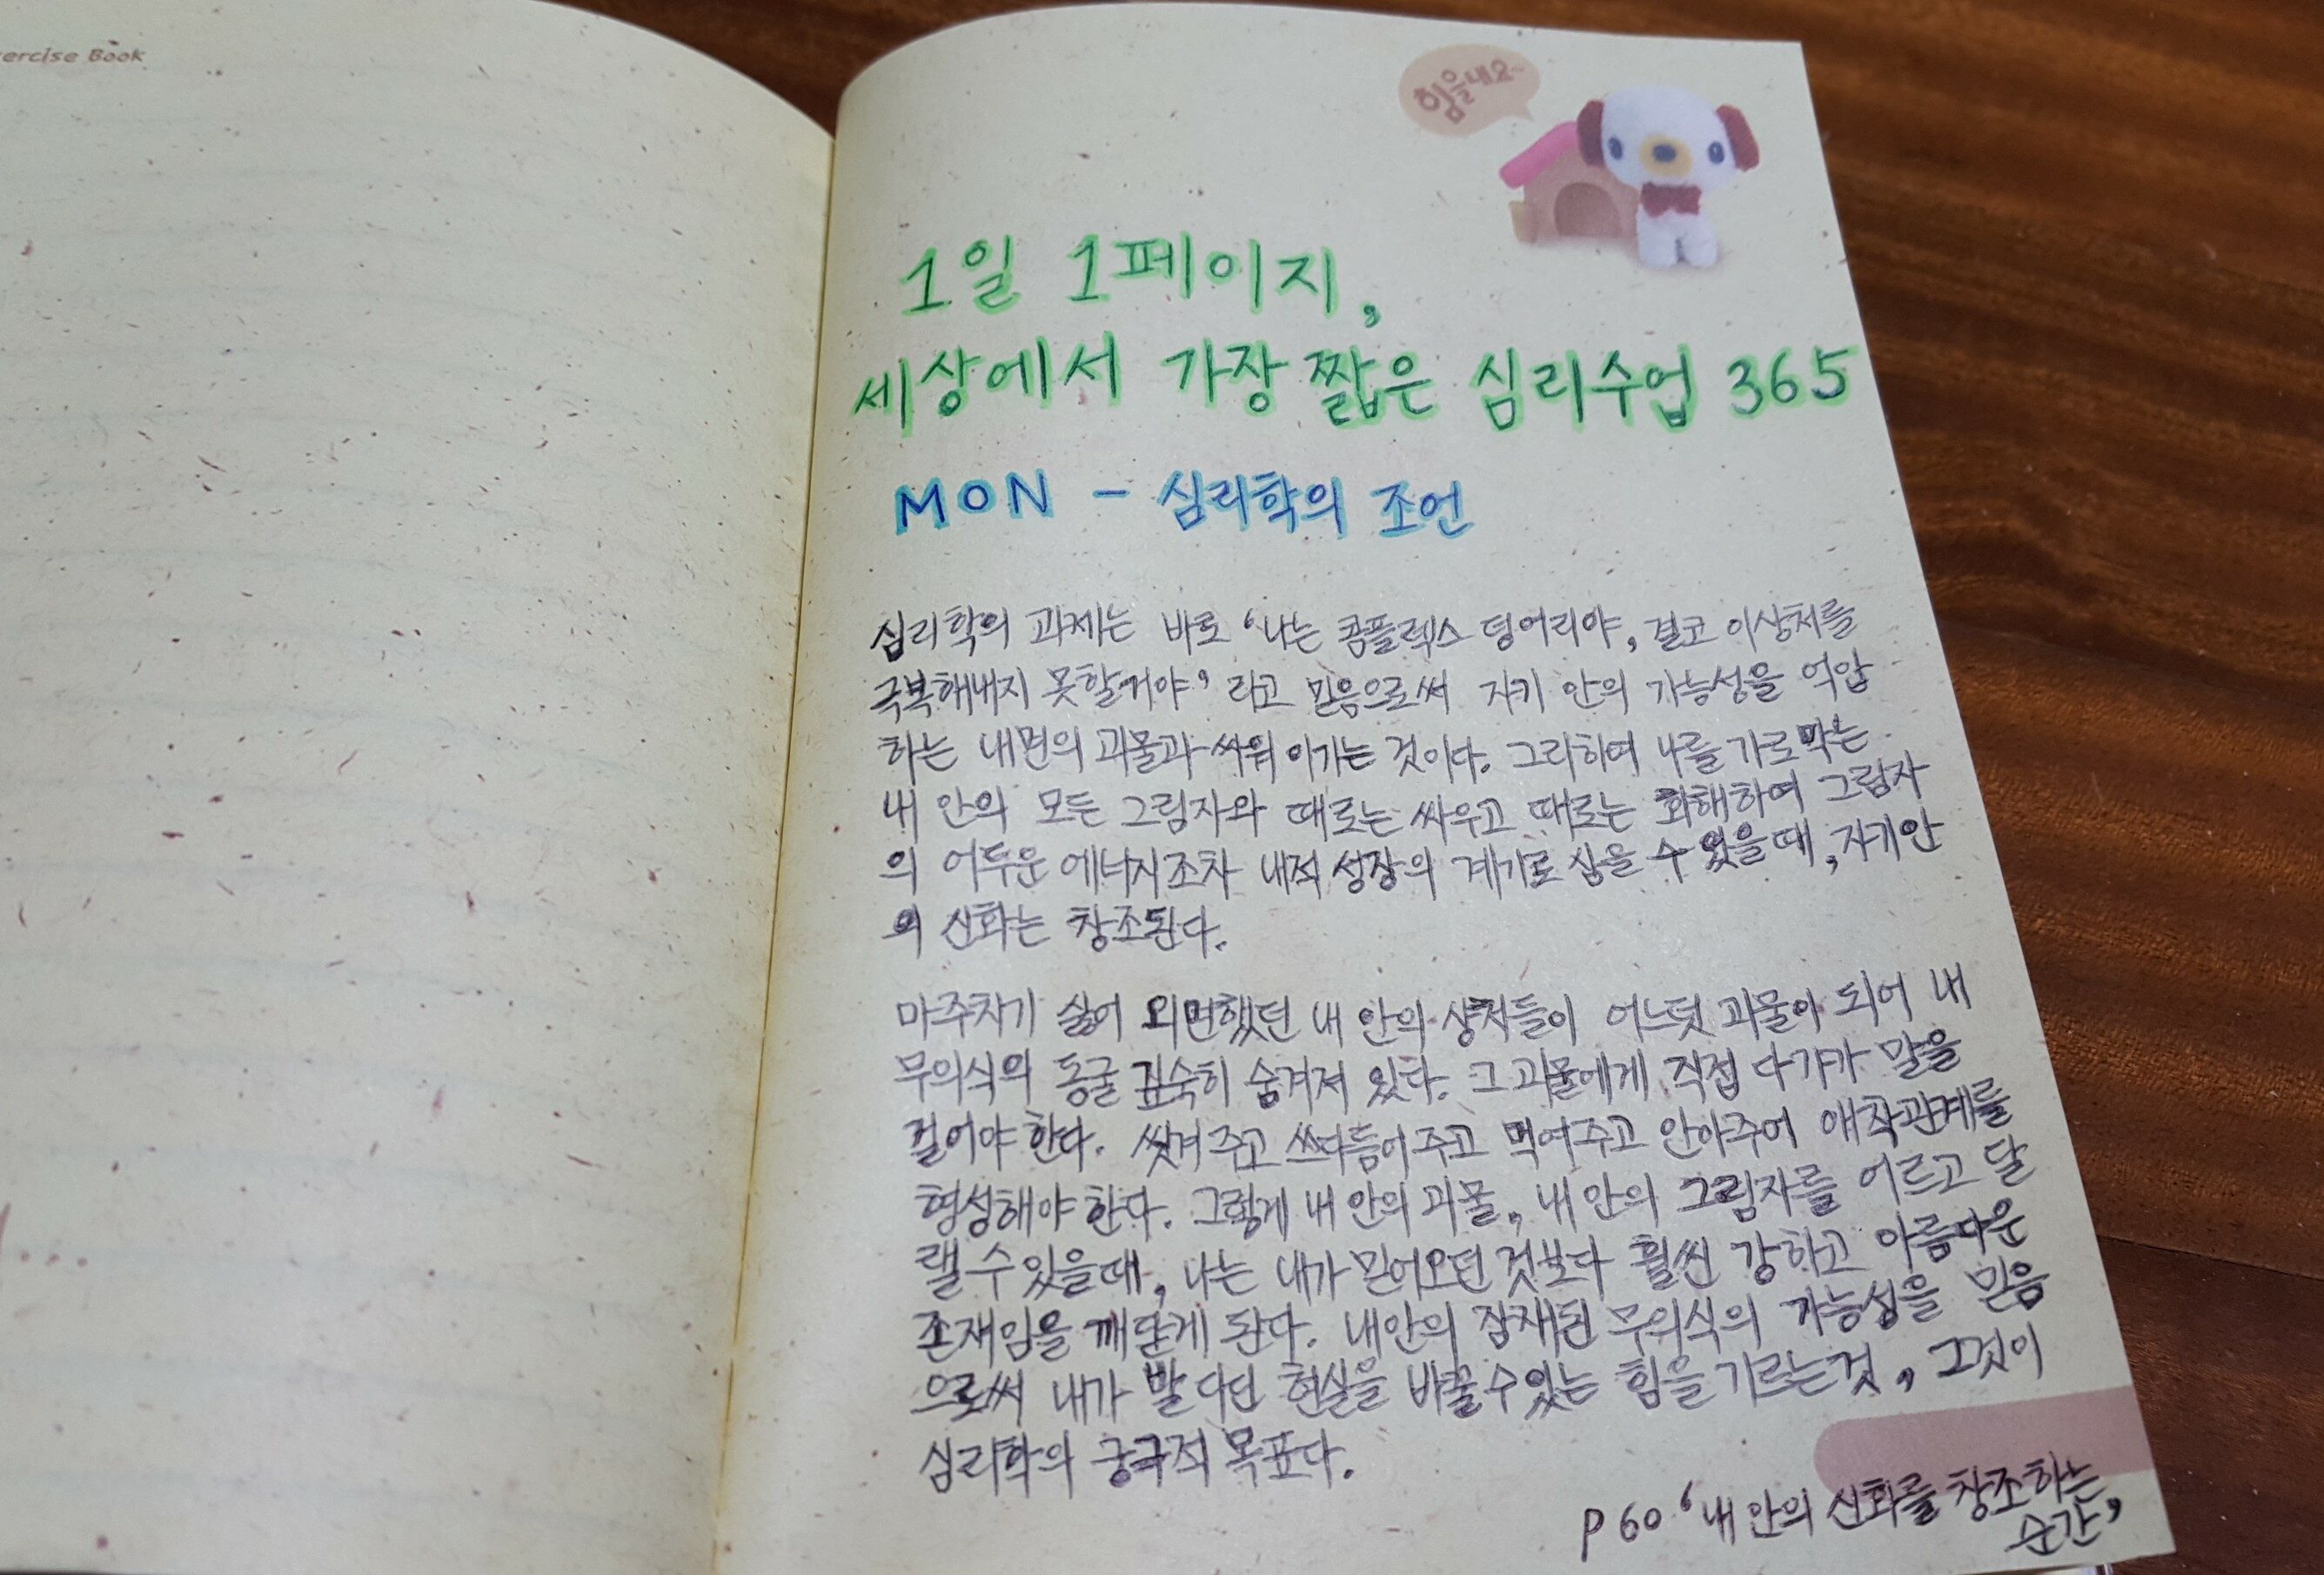 ercise Book
힘을내요~
1일 1페이지,
세상에서 가장 짧은 심리수업 365
MON - 심리학의 조언
심리학의 과제는 바로 '나는 콤플렉스 덩어리야, 결코 이상처를
극복해내지 못할거야' 라고 믿음으로써 자기 안의 가능성을 억압
하는 내면의 괴물과 싸워 이기는 것이다. 그리하여 나를 가로막는
내 안의 모든 그림자와 때로는 싸우고 때로는 화해하여 그림자
의 어두운 에너지조차 내적 성장의 계기로 삼을 수 있을때, 자기안
의 신화는 창조된다.
마주차기 싫어 외면했던 내 안의 상처들이 어느덧 괴물이 되어 내
무의식의 동굴 깊숙히 숨겨져 있다. 그 괴물에게 직접 다가가 말을
걸어야 한다. 씻겨주고 쓰다듬어주고 먹여주고 안아주어 애착관계를
형성해야 한다. 그렇게 내 안의 괴물, 내 안의 그림자를 어르고 달
랠 수 있을때, 나는 내가 믿어오던 것보다 훨씬 강하고 아름다운
존재임을 깨닫게 된다. 내안의 잠재된 무의식의 가능성을 믿음
으로써 내가 발 다딘 현실을 바꿀수 있는 힘을 기르는것, 그것이
심리학의 궁극적 목표다.
P 60 '내 안의 신화를 창조하는
순간'